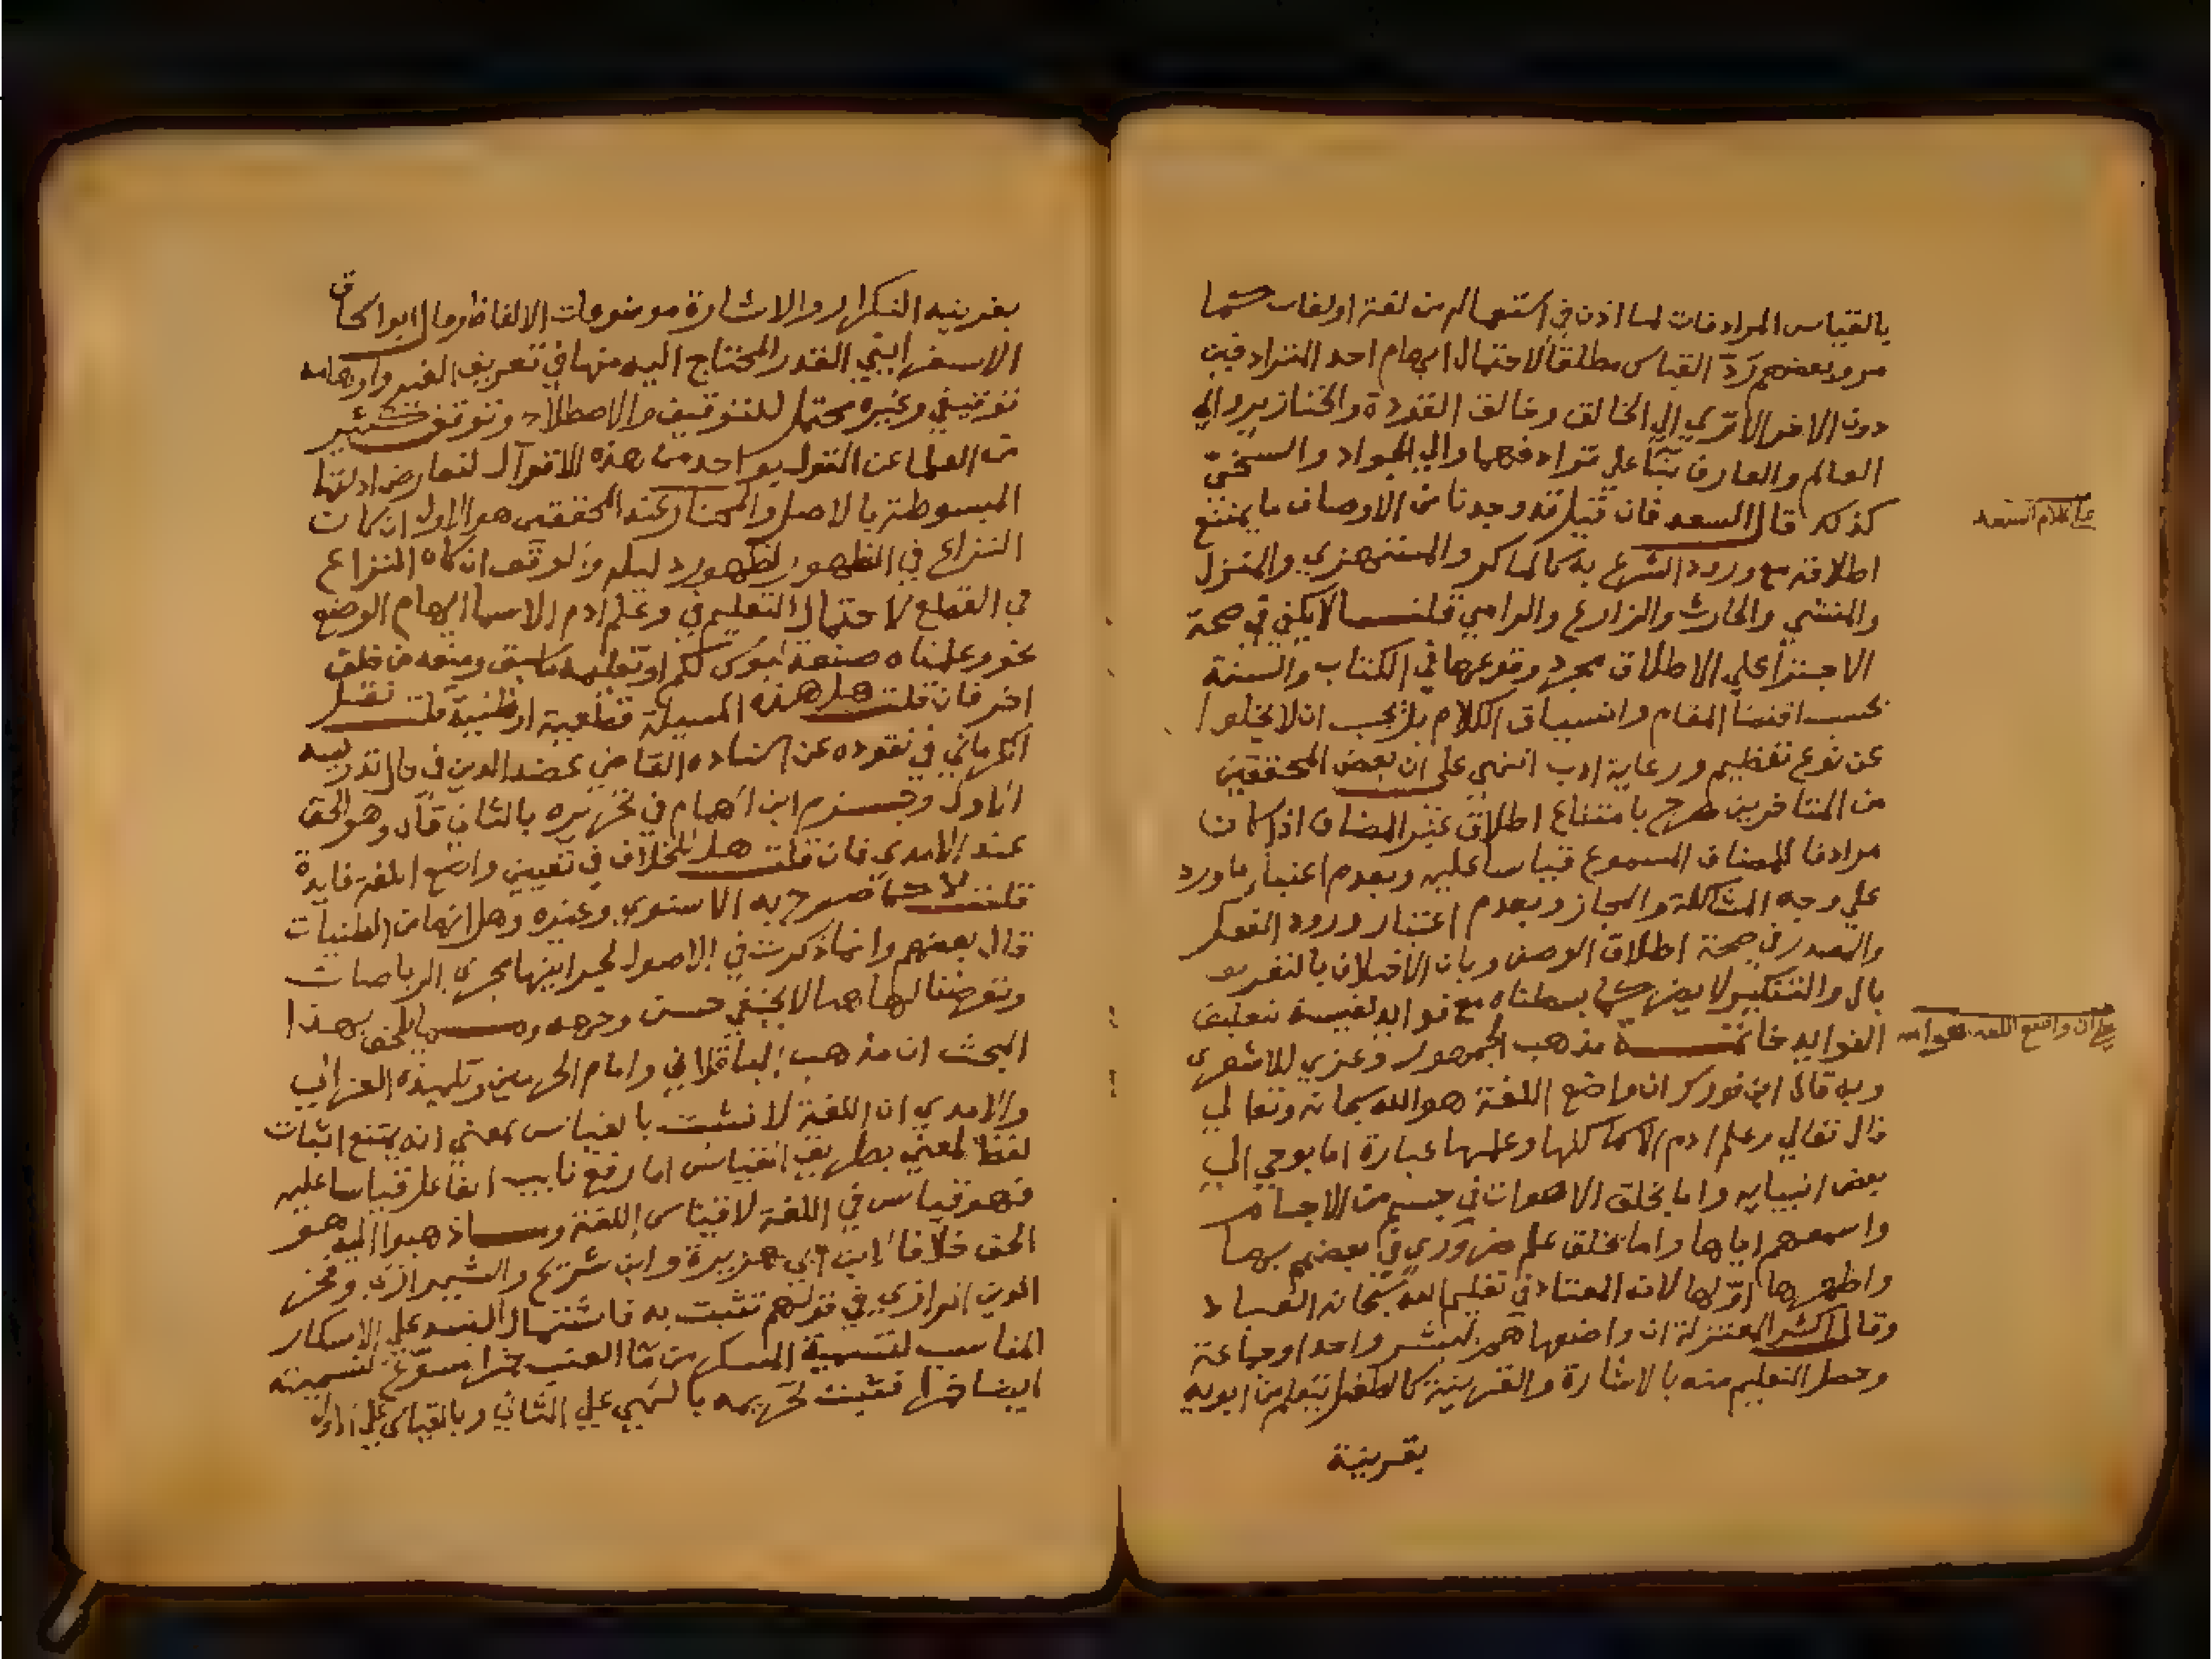 بالقياس المرادفات لما اذن في استعماله من لغة او لغات كما
مر وبعضهم رد القياس مطلقا لاحتمال ايهام احد المترادفين
دون الاخر الا تري الي الخالق وخالق القردة والخنازير والي
العالم والعارف بنا علي ترادفهما والي الجواد والسخي
كذلك قال السعد فان قيل قد وجدنا من الاوصاف ما يمتنع
اطلاقه مع ورود الشرع به كالماكر والمستهزي والمنزل
والمنشي والحارث والزارع والرامي قلنا لا يكفي في صحة
الاجتزا علي الاطلاق مجرد وقوعها في الكتاب والسنة
بحسب اقتضا المقام وانسياق الكلام بل يجب ان لا يخلوا
عن نوع تعظيم ورعاية ادب انتهي علي ان بعض المحققين
من المتاخرين صرح بامتناع اطلاق غير المضاف اذا كان
مرادفا للمضاف المسموع قياسا عليه وبعدم اعتبار ما ورد
علي وجه المشاكلة والمجاز وبعدم اعتبار ورود الفعل
والمصدر في صحة اطلاق الوصف وبان الاختلاف بالتعريف
بال والتنكير لا يضر كما بسطناه مع فوايد نفيسة بتعليق
الفوايد خاتمة مذهب الجمهور وعزي للاشعري
وبه قال ابن فورك ان واضع اللغة هو الله سبحانه وتعالي
قال تعالي وعلم ادم الاسما كلها وعلمها عباره اما بوحي الي
بعض انبيايه واما بخلق الاصوات في جسم من الاجسام
واسمعهم اياها واما بخلق علم ضروري في بعضهم بها
واظهرها اولها لانه المعتاد في تعليم الله سبحانه العباد
وقال اكثر المعتزلة ان واضعها هم البشر واحد او جماعة
وحصل التعليم منه بالاشارة والقرينة كالطفل يتعلم من ابويه
بقرينة
علي كلام السعد
علي ان واضع اللغة هو الله
بقرينة التكرار والاشارة موضوعات الالفاظ وقال ابو اسحاق
الاسفرايني القدر المحتاج اليه منها في تعريف الغير
توقيفي وغيره محتمل للتوقيف والاصطلاح وتوقف كثير
من العلما عن القول بواحد من هذه الاقوال لتعارض ادلتها
المبسوطة بالاصل والمختار عند المحققين هو الاول ان كان
النزاع في الظهور لظهور دليله والوقف ان كان النزاع
في القطع لاحتمال التعليم في وعلم ادم الاسما الهام الوضع
نحو وعلمناه صنعة لبوس لكم او تعليمه ما سبق وضعه من خلق
اخر فان قلت هل هذه المسيلة قطعية او ظنية قلت نقل
الكرماني في نقوده عن استاده القاضي عضد الدين في حال تدريسه
الاول وجزم ابن الهمام في تحريره بالثاني قال وهو الحق
عند الامدي فان قلت هل للخلاف في تعيين واضع اللغة فايدة
قلت لا كما صرح به الاسنوي وغيره وهل انها من الظنيات
قال بعضهم وانما ذكرت في الاصول لجريانها مجري الرياضات
وتعرضنا لها هنا لا يخفي حسن وجهه ومما يلحق بهذا
البحث ان مذهب الباقلاني وامام الحرمين وتلميذه الغزالي
والامدي ان اللغة لا تثبت بالقياس بمعني انه يمتنع اثبات
لفظ لمعني بطريق القياس اما رفع نايب الفاعل قياسا عليه
فهو قياس في اللغة لا قياس اللغة وما ذهبوا اليه هو
الحق خلافا لابن ابي هريرة وابن شريح والشيرازي وفخر
الدين الرازي في قولهم تثبت به فاشتمال النبيذ علي الاسكار
المناسب لتسمية المسكر من ما العنب خمرا مسوغ لتسميته
ايضا خمرا فثبت تحريمه بالنهي علي الثاني وبالقياس علي الاول